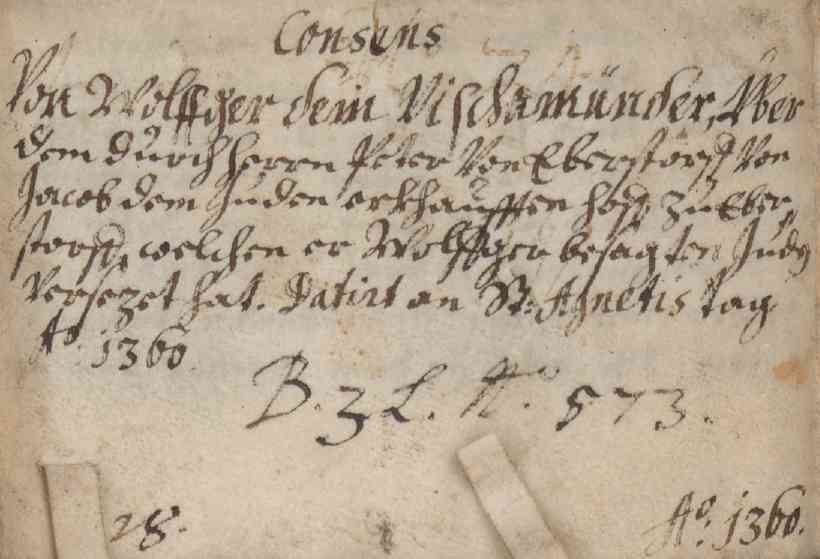 Consens
Von Wolffger dem Vischamünder, Über
dem durch herrn Peter Von Eberstorff Von
Jacob dem Juden erkhaufften hoff zu Eber„
storff, welchen er Wolffger besagten Juden
Versezet hat. Datirt an St: Agnetis tag
Ao. 1360
B. 3 L. A. 573.
28.
Ao: 1360.